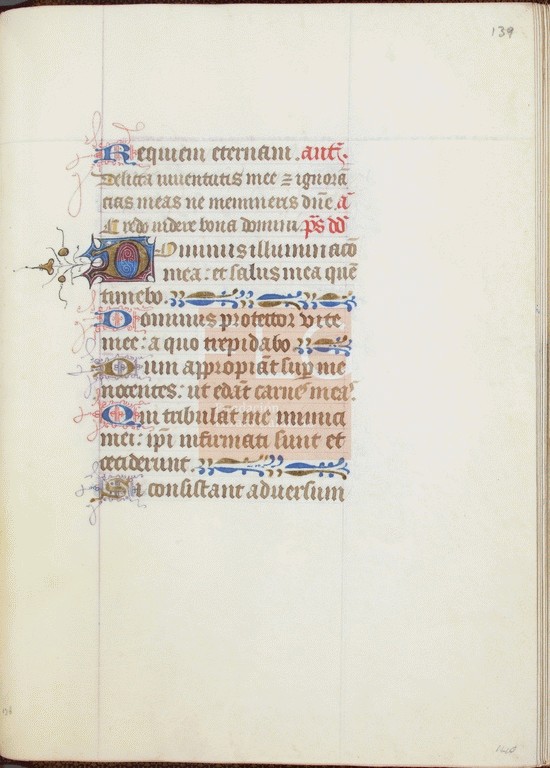 139
Requiem eternam. ant̄.
Delicta iuventutis mee ⁊ ignorā
cias meas ne memineris dñe. a͞
Credo videre bona domini. p̄s dd̄
Dominus illuminacō
mea: et salus mea quē
timebo.
Dominus protector vite
mee: a quo trepidabo
Dum appropiāt sup̱ me
nocentes: ut edāt carnes meas.
Qui tribulāt me inimici
mei: ip̄i infirmati sunt et
ceciderunt.
Si consistant adversum
140